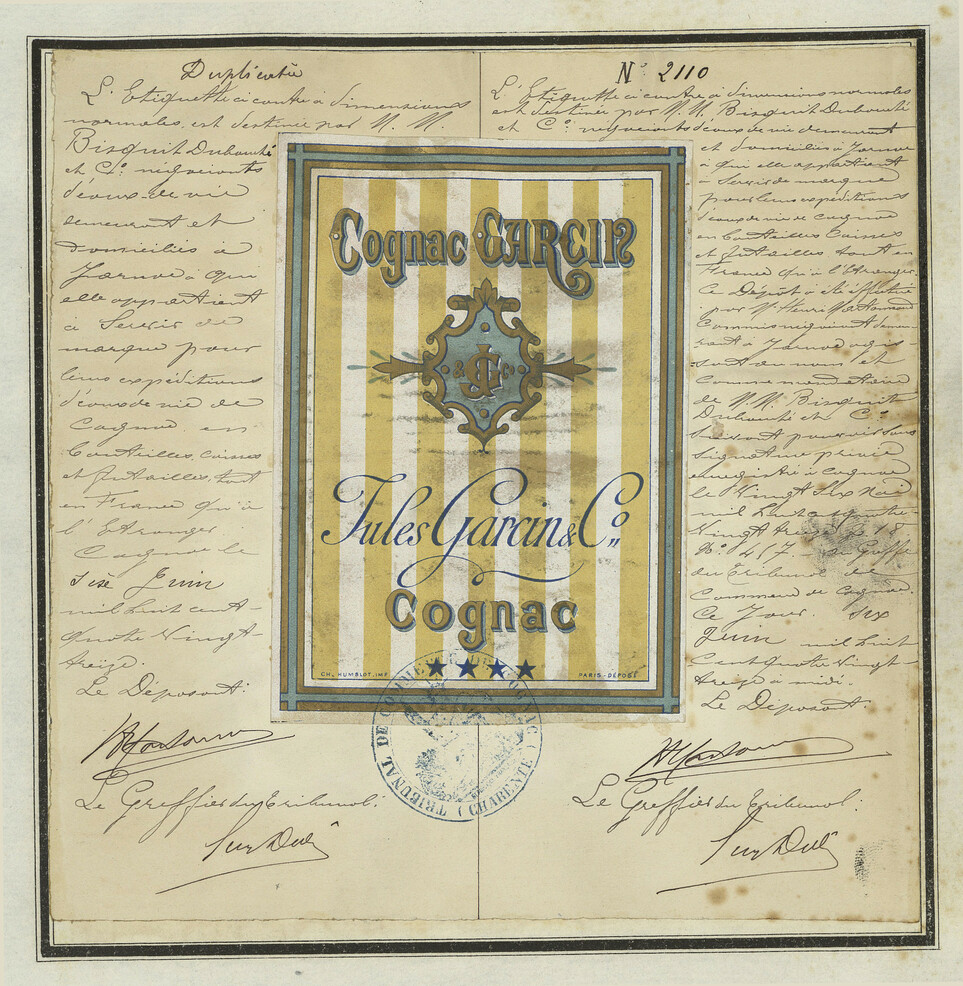 Duplicata
L'Etiquette ci contre à dimensions
normales, est destinée par M. M.
Bisquit Dubouché
et Cie. négociants
d'eaux-de-vie
demeurant et
domiciliés à
Jarnac à qui
elle appartient
à Servir de
marque pour
leurs expéditions
d'eaux de vie de
Cognac en
bouteilles, caisses
et futailles, tant
en France qu'à
l'Etranger
Cognac le
six Juin
mil huit cent
quatre Vingt
treize.
Le Déposant:
Le Greffier du Tribunal:
N° 2110
L'Etiquette ci contre à dimensions normales
est destinée par M. M. Bisquit Dubouché
et Cie. négociants d'eaux de vie demeurant
et domiciliés à Jarnac
à qui elle appartient
à Servir de marque
pour leurs expéditions
d'eaux de vie de Cognac
en bouteilles Caisses
et futailles tant en
France qu'à l'Etranger.
Ce Dépôt a été effectué
par Mr Henri
Commis négociant demeu-
rant à Jarnac agis-
sant au nom et
Comme mandataire
de M. M. Bisquit
Dubouché et Cie.
Suivant pouvoir sous
Signature privée
enregistré à Cognac
le Vingt Six Mai
mil huit cent quatre
Vingt treize
N° 417 au Greffe
du Tribunal de
Commerce de Cognac.
Ce Jour six
Juin mil huit
Cent quatre Vingt
treize à midi.
Le Déposant
Le Greffier du Tribunal:
Cognac GARCIN
& JG Co
Jules Garcin & Co.
Cognac
CH. HUMBLOT. IMP PARIS-DÉPOSÉ
TRIBUNAL DE COMMERCE DE COGNAC (CHARENTE)